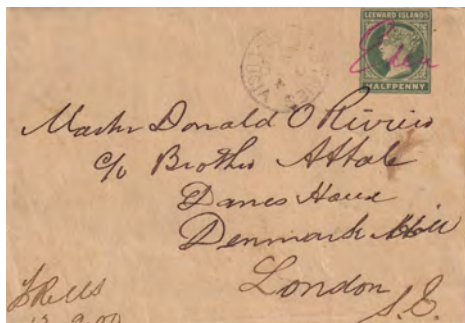 LEEWARD ISLANDS
HALFPENNY
Master Donald O Riviere
c/o Brother Attale
Danes House
Denmark Hill
London
S.E.
13 9.00